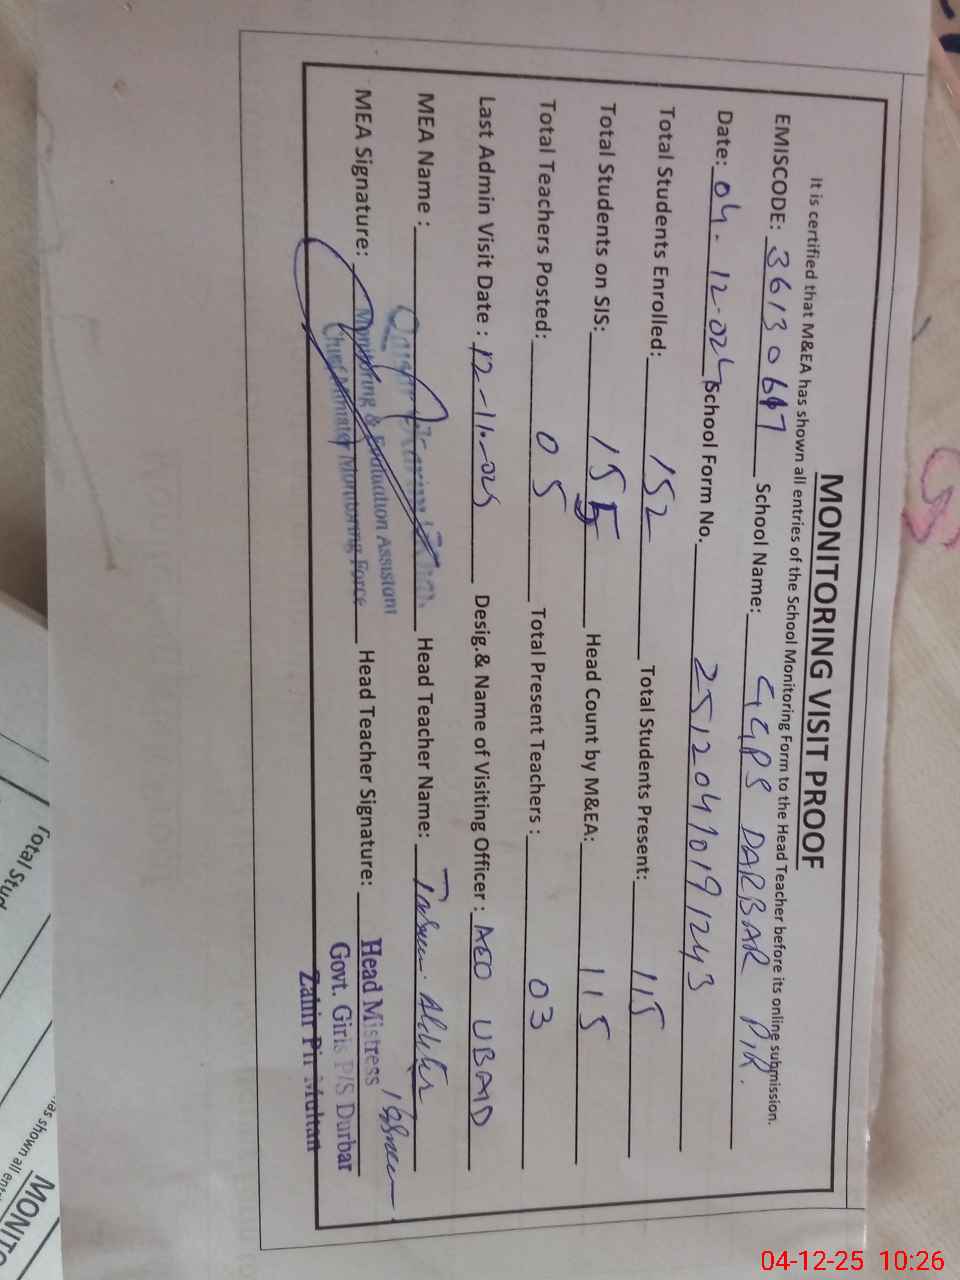 MONITORING VISIT PROOF
It is certified that M&EA has shown all entries of the School Monitoring Form to the Head Teacher before its online submission.
EMISCODE: 36130647 School Name: GGPS DARBAR PIR.
Date: 04-12-025 School Form No. 25120410191243
Total Students Enrolled: 152 Total Students Present: 115
Total Students on SIS: 155 Head Count by M&EA: 115
Total Teachers Posted: 05 Total Present Teachers : 03
Last Admin Visit Date : 12-11-025 Desig.& Name of Visiting Officer : AEO UBAID
MEA Name : Head Teacher Name:
MEA Signature: Monitoring & Evaluation Assistant Head Teacher Signature: Head Mistress
Chief Minister Monitoring Force Govt. Girls P/S Durbar
Zahir Pir Multan
Total Stud
has shown all entri
MONITO
04-12-25 10:26